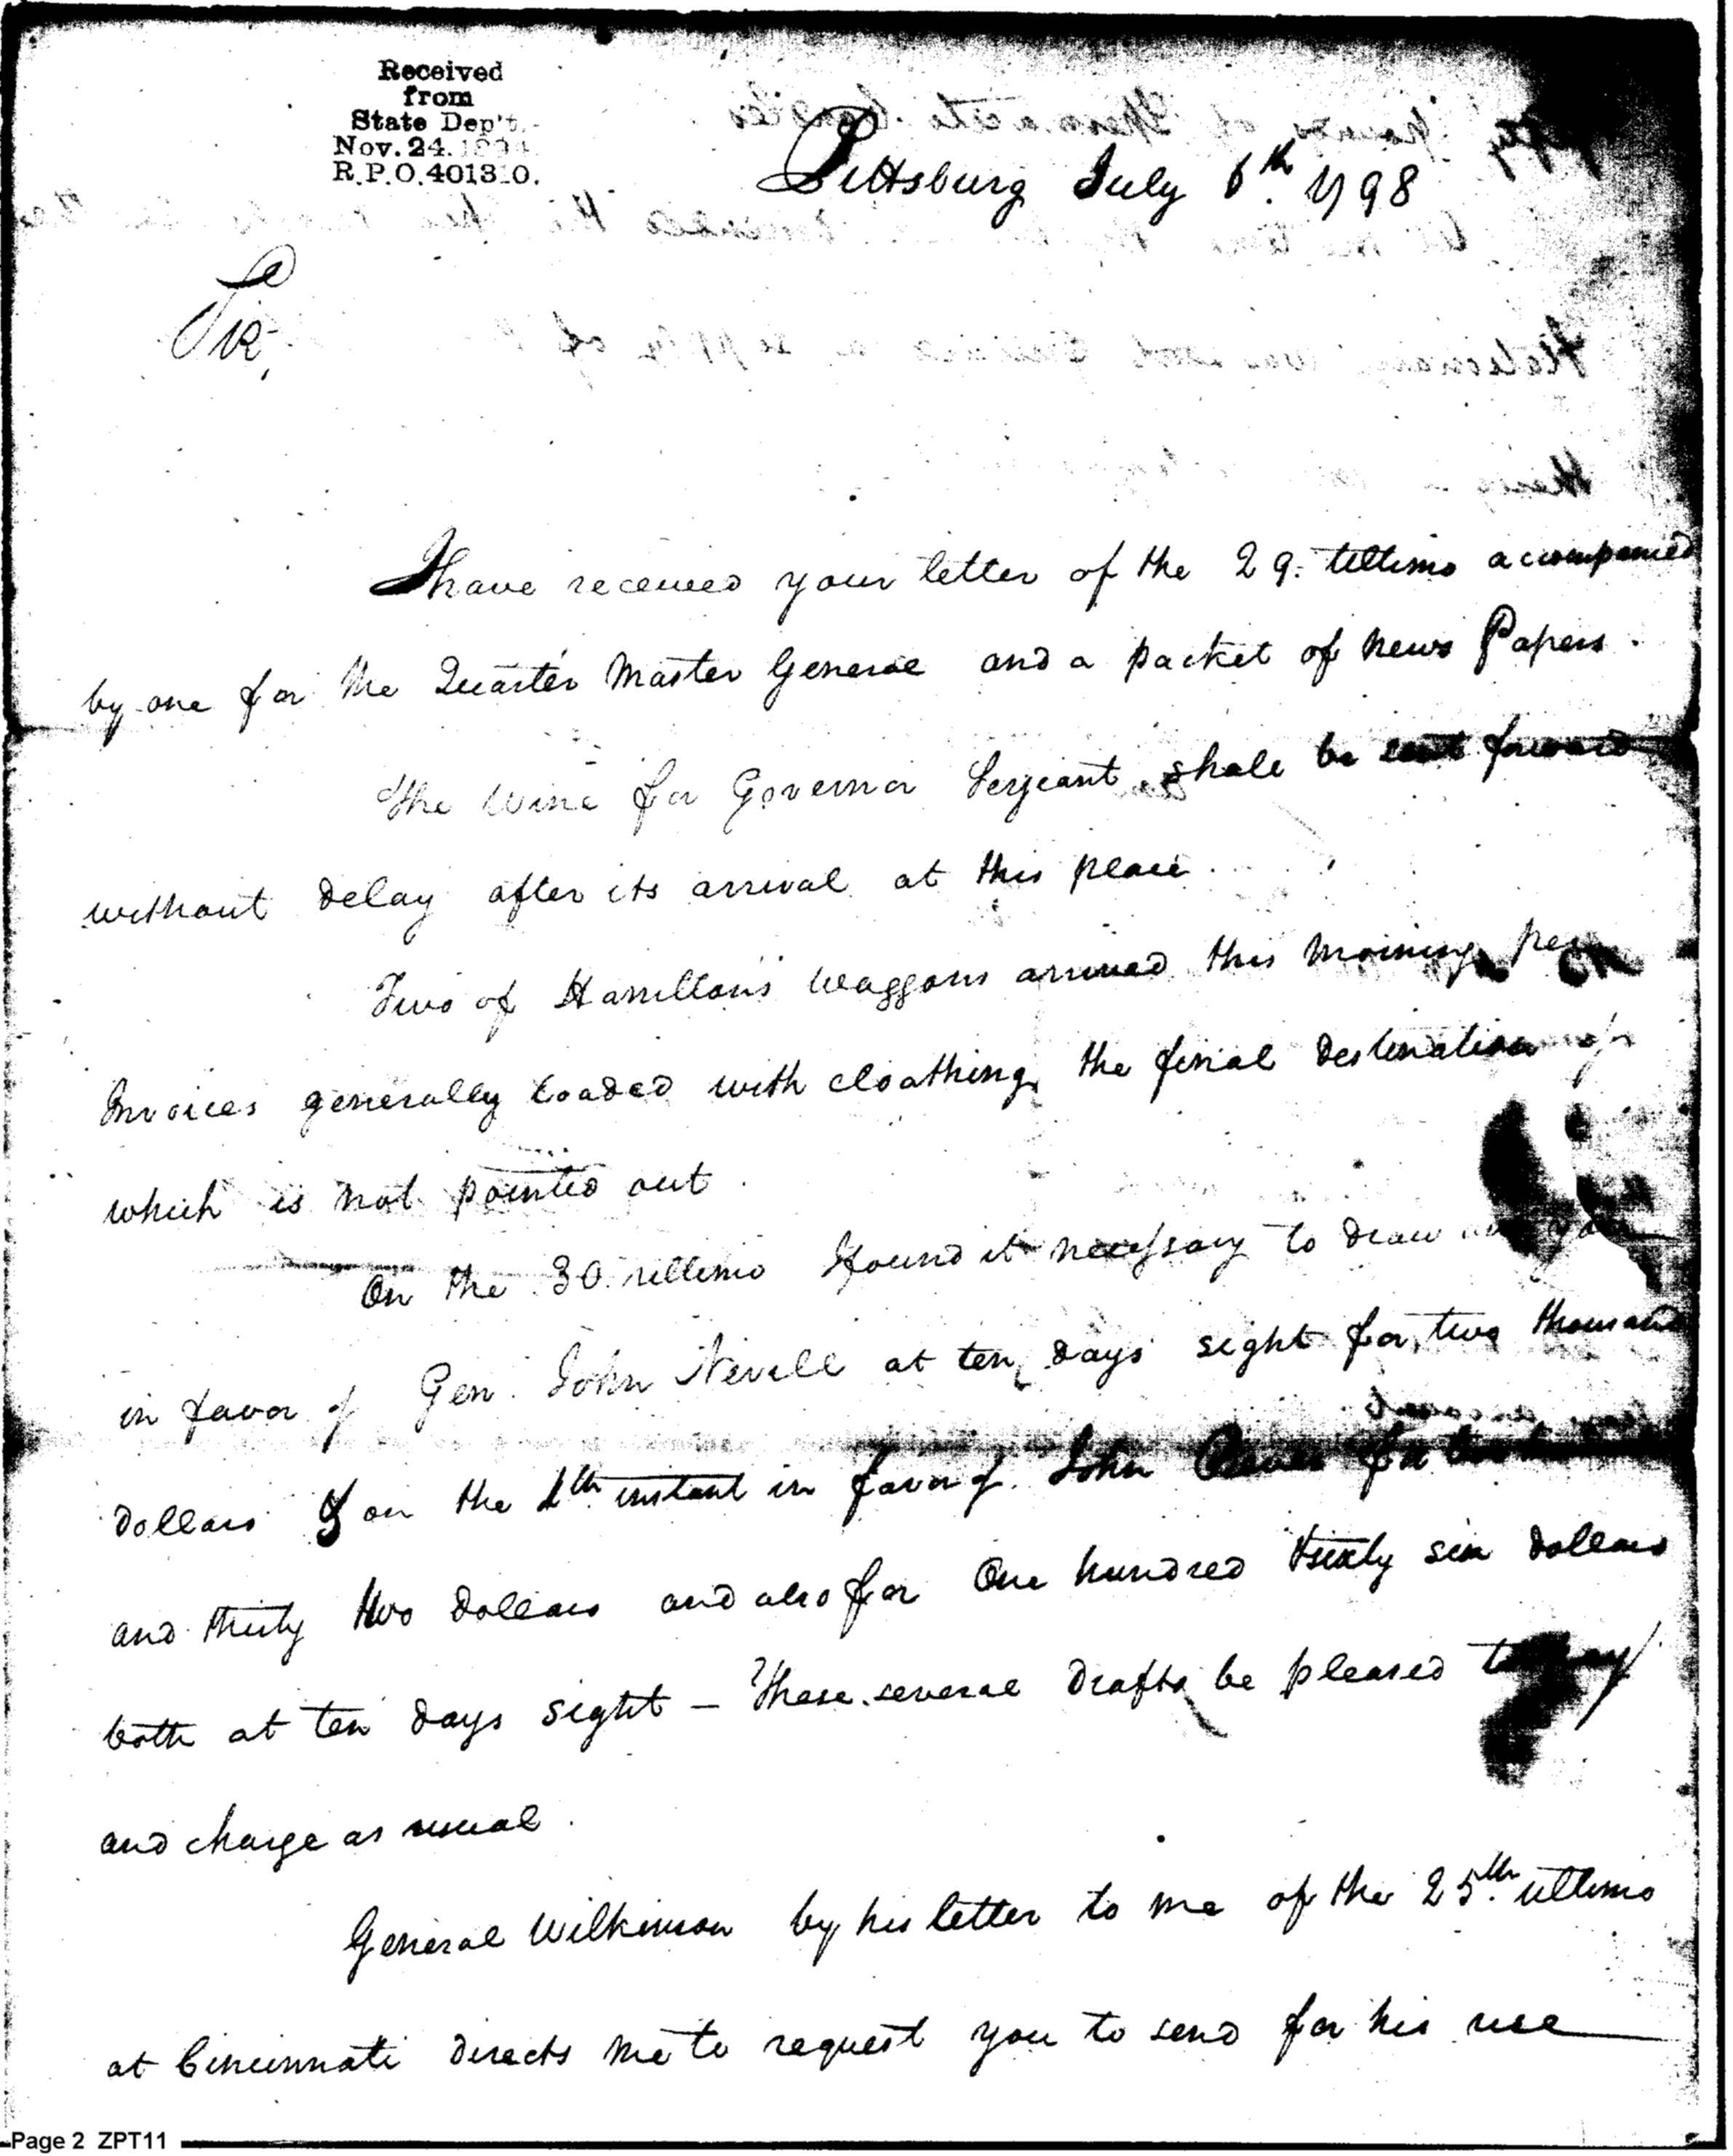 Received
from
State Dep't.
Nov. 24. 1894.
R.P.O. 401310.
Pittsburg July 6th. 1798
Sir,
I have received your letter of the 29. Ultimo accompanied
by one for the Quarter Master General and a packet of News Papers.
The Wine for Governor Serjeant, shall be sent forward
without delay after its arrival at this place.
Two of Hamilton's Waggons arrived this Morning, per
Invoices generally loaded with cloathing, the final destination of
which is not pointed out.
On the 30. ultimo I found it necessary to draw on you
in favor of Gen. John Nevill at ten days sight for two thousand
dollars & on the 4th instant in favor of John for two hundred
and thirty two dollars and also for One hundred thirty six dollars
both at ten days sight – These several drafts be pleased to pay
and charge as usual.
General Wilkinson by his letter to me of the 25th. ultimo
at Cincinnati directs me to request you to send for his use
Page 2 ZPT11